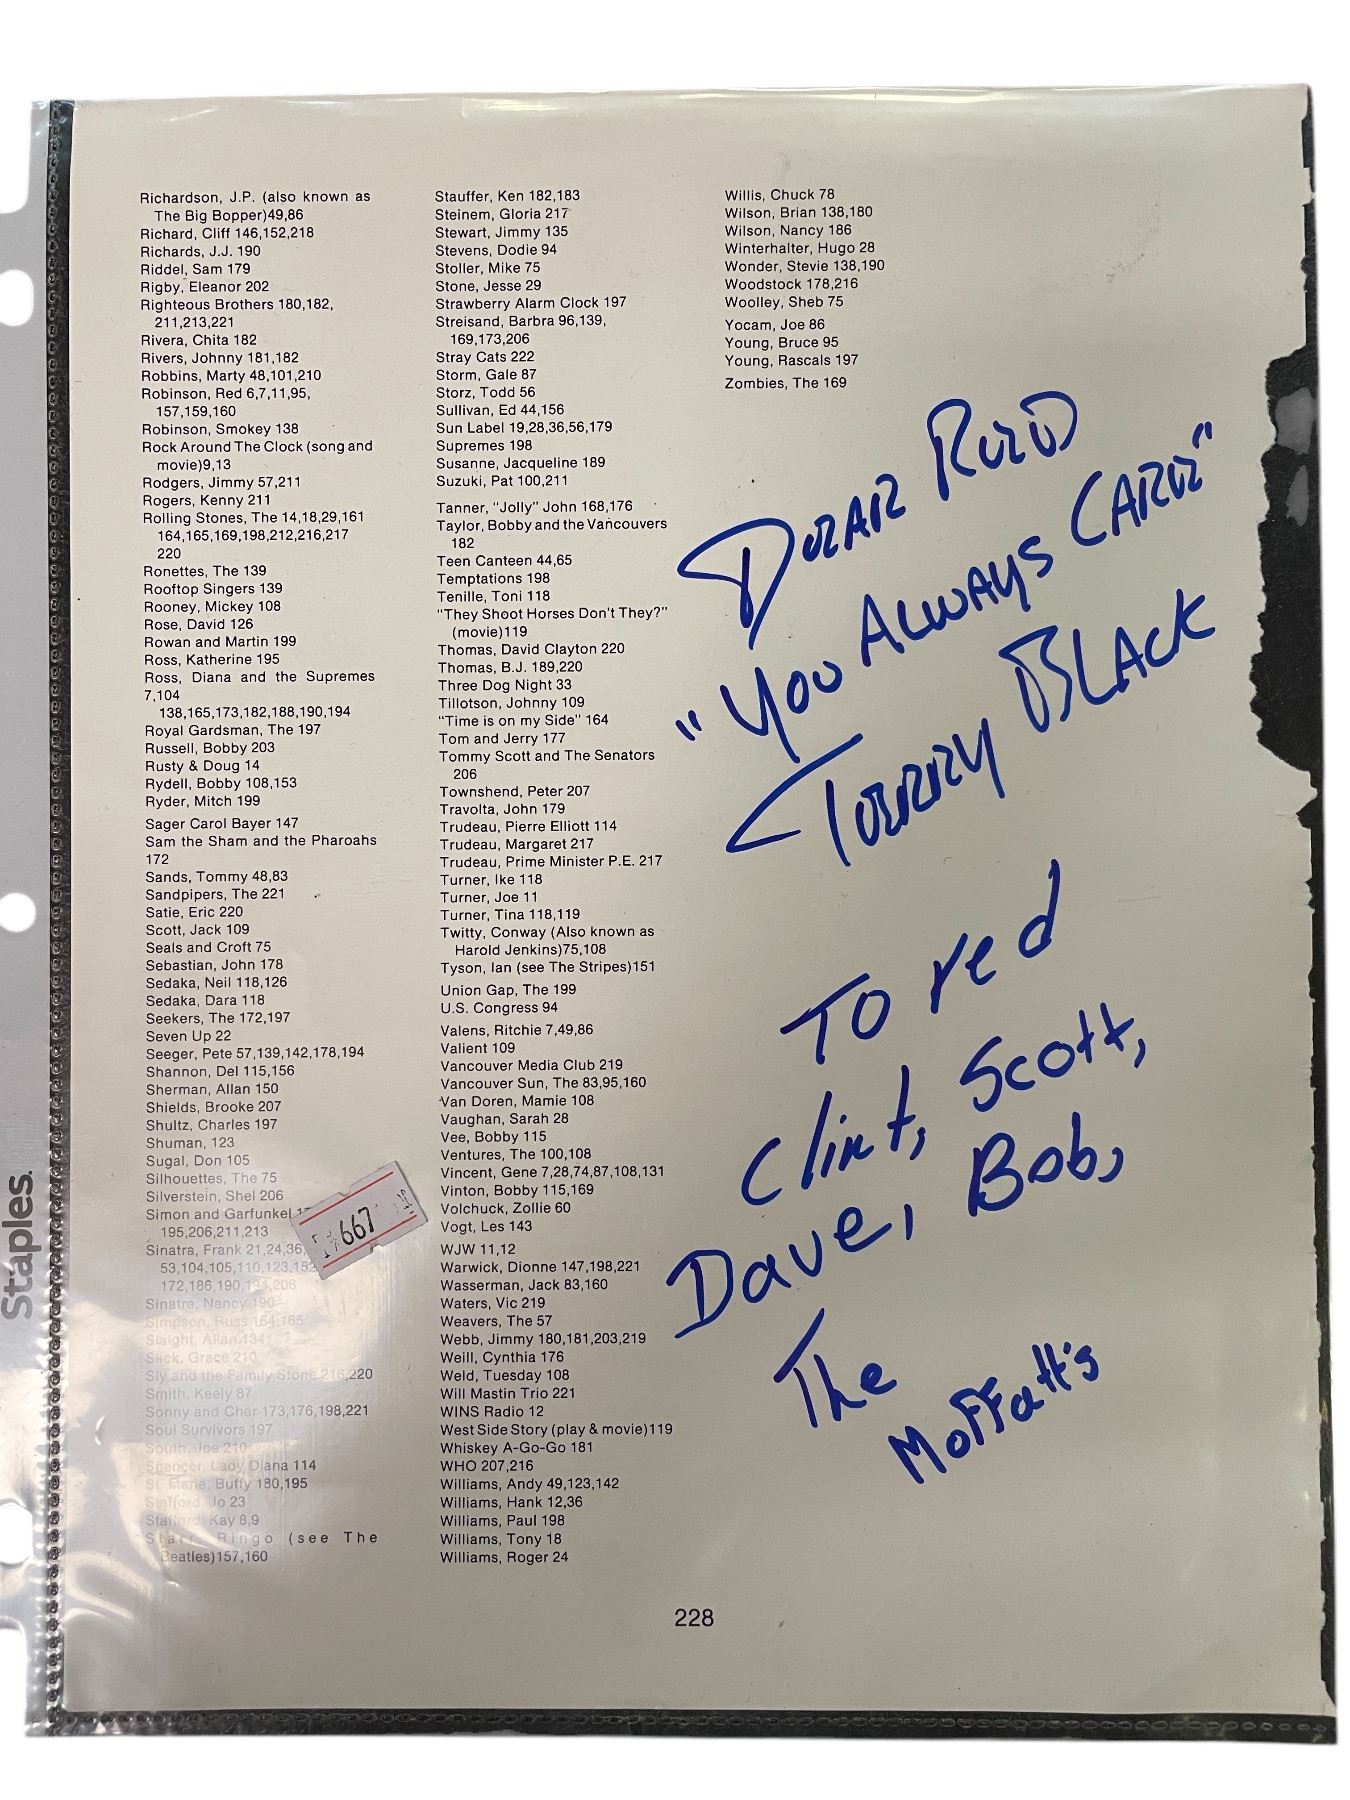 Richardson, J.P. (also known as
The Big Bopper)49,86
Richard, Cliff 146,152,218
Richards, J.J. 190
Riddel, Sam 179
Rigby, Eleanor 202
Righteous Brothers 180,182,
211,213,221
Rivera, Chita 182
Rivers, Johnny 181,182
Robbins, Marty 48,101,210
Robinson, Red 6,7,11,95,
157,159,160
Robinson, Smokey 138
Rock Around The Clock (song and
movie)9,13
Rodgers, Jimmy 57,211
Rogers, Kenny 211
Rolling Stones, The 14,18,29,161
164,165,169,198,212,216,217
220
Ronettes, The 139
Rooftop Singers 139
Rooney, Mickey 108
Rose, David 126
Rowan and Martin 199
Ross, Katherine 195
Ross, Diana and the Supremes
7,104
138,165,173,182,188,190,194
Royal Gardsman, The 197
Russell, Bobby 203
Rusty & Doug 14
Rydell, Bobby 108,153
Ryder, Mitch 199
Sager Carol Bayer 147
Sam the Sham and the Pharoahs
172
Sands, Tommy 48,83
Sandpipers, The 221
Satie, Eric 220
Scott, Jack 109
Seals and Croft 75
Sebastian, John 178
Sedaka, Neil 118,126
Sedaka, Dara 118
Seekers, The 172,197
Seven Up 22
Seeger, Pete 57,139,142,178,194
Shannon, Del 115,156
Sherman, Allan 150
Shields, Brooke 207
Shultz, Charles 197
Shuman, 123
Sugal, Don 105
Silhouettes, The 75
Silverstein, Shel 206
Simon and Garfunkel
195,206,211,213
Sinatra, Frank 21,24,36,
53,104,105,110,123,152
172,186,190,194,206
Sinatra, Nancy 190
Simpson, Russ 164,165
Slaight, Allan 134
Slick, Grace 210
Sly and the Family Stone 216,220
Smith, Keely 87
Sonny and Cher 173,176,198,221
Soul Survivors 197
South, Joe 210
Spencer, Lady Diana 114
St. Marie, Buffy 180,195
Stafford, Jo 23
Stafford, Kay 8,9
Starr, Ringo (see The
Beatles)157,160
Stauffer, Ken 182,183
Steinem, Gloria 217
Stewart, Jimmy 135
Stevens, Dodie 94
Stoller, Mike 75
Stone, Jesse 29
Strawberry Alarm Clock 197
Streisand, Barbra 96,139,
169,173,206
Stray Cats 222
Storm, Gale 87
Storz, Todd 56
Sullivan, Ed 44,156
Sun Label 19,28,36,56,179
Supremes 198
Susanne, Jacqueline 189
Suzuki, Pat 100,211
Tanner, "Jolly" John 168,176
Taylor, Bobby and the Vancouvers
182
Teen Canteen 44,65
Temptations 198
Tenille, Toni 118
"They Shoot Horses Don't They?"
(movie)119
Thomas, David Clayton 220
Thomas, B.J. 189,220
Three Dog Night 33
Tillotson, Johnny 109
"Time is on my Side" 164
Tom and Jerry 177
Tommy Scott and The Senators
206
Townshend, Peter 207
Travolta, John 179
Trudeau, Pierre Elliott 114
Trudeau, Margaret 217
Trudeau, Prime Minister P.E. 217
Turner, Ike 118
Turner, Joe 11
Turner, Tina 118,119
Twitty, Conway (Also known as
Harold Jenkins)75,108
Tyson, Ian (see The Stripes)151
Union Gap, The 199
U.S. Congress 94
Valens, Ritchie 7,49,86
Valient 109
Vancouver Media Club 219
Vancouver Sun, The 83,95,160
Van Doren, Mamie 108
Vaughan, Sarah 28
Vee, Bobby 115
Ventures, The 100,108
Vincent, Gene 7,28,74,87,108,131
Vinton, Bobby 115,169
Volchuck, Zollie 60
Vogt, Les 143
WJW 11,12
Warwick, Dionne 147,198,221
Wasserman, Jack 83,160
Waters, Vic 219
Weavers, The 57
Webb, Jimmy 180,181,203,219
Weill, Cynthia 176
Weld, Tuesday 108
Will Mastin Trio 221
WINS Radio 12
West Side Story (play & movie)119
Whiskey A-Go-Go 181
WHO 207,216
Williams, Andy 49,123,142
Williams, Hank 12,36
Williams, Paul 198
Williams, Tony 18
Williams, Roger 24
Willis, Chuck 78
Wilson, Brian 138,180
Wilson, Nancy 186
Winterhalter, Hugo 28
Wonder, Stevie 138,190
Woodstock 178,216
Woolley, Sheb 75
Yocam, Joe 86
Young, Bruce 95
Young, Rascals 197
Zombies, The 169
DEAR RED
"YOU ALWAYS CARE"
TERRY BLACK
To red
Clint, Scott,
Dave, Bob,
The
Moffatt's
667
Staples.
228